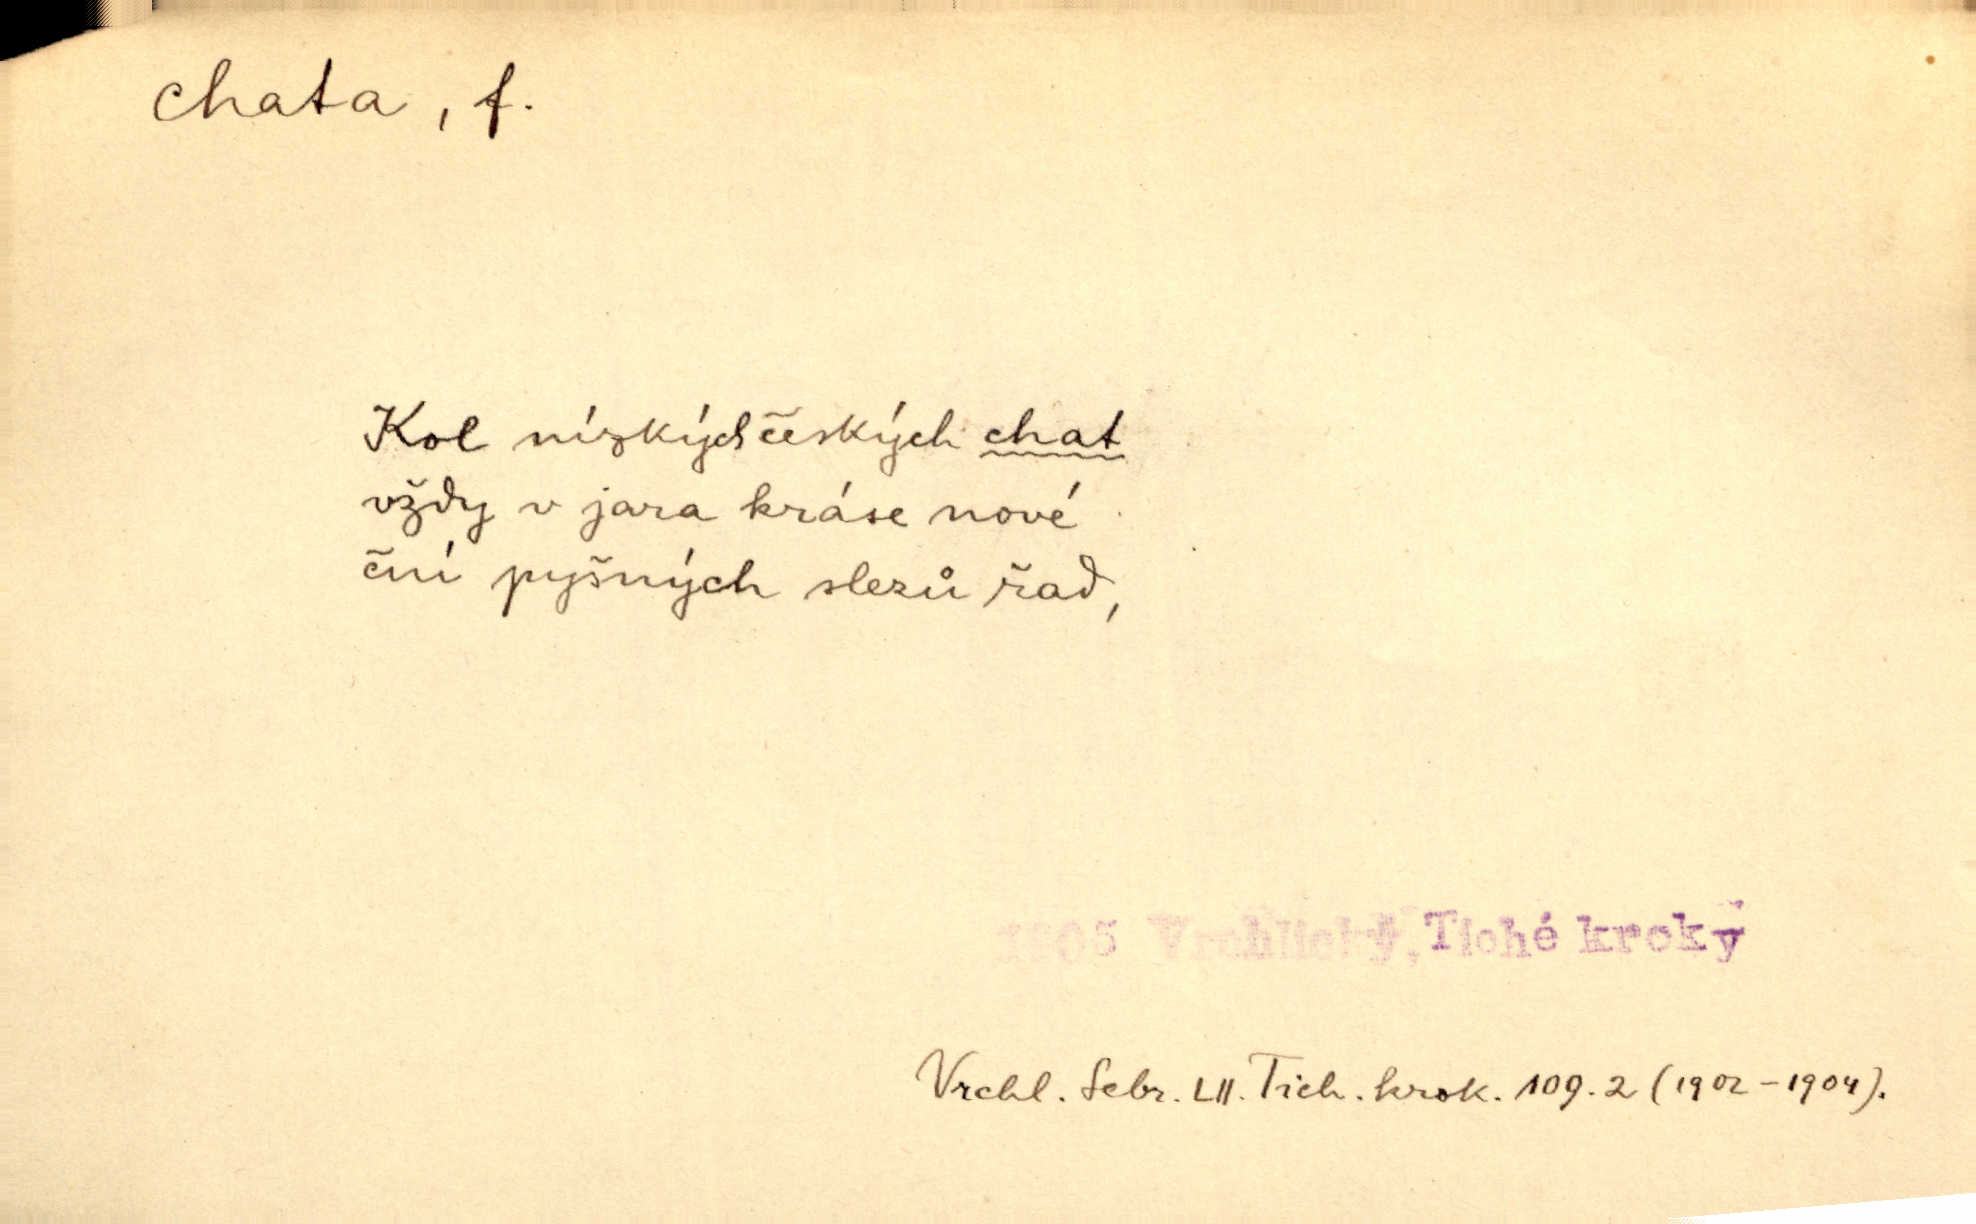 chata, f.
Kol nízkých českých chat
vždy v jara kráse nové
ční pyšných slezů řad,
1905 Vrchlický, Tiché kroky
Vrchl. Sebr. LII. Tich. krok. 109.2 (1902-1904).